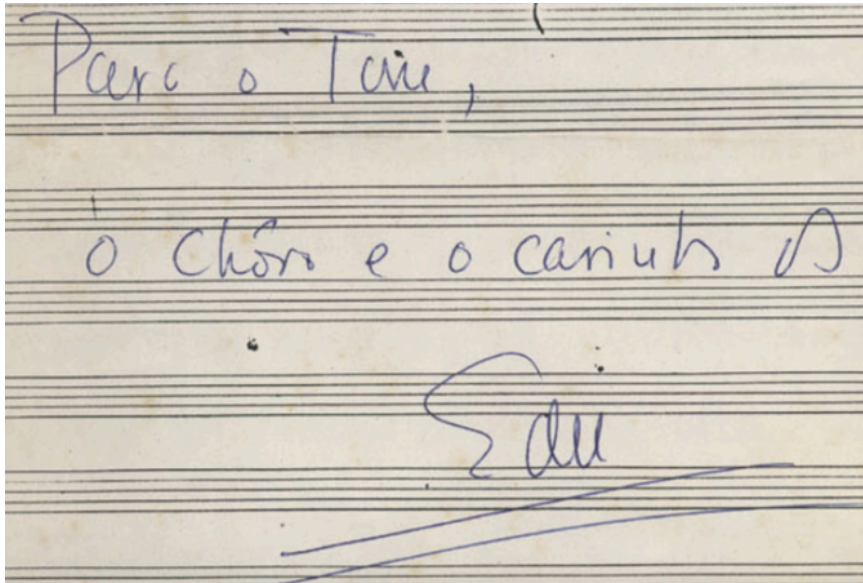 Para o Tom,
o chôro e o carinho do
Edu